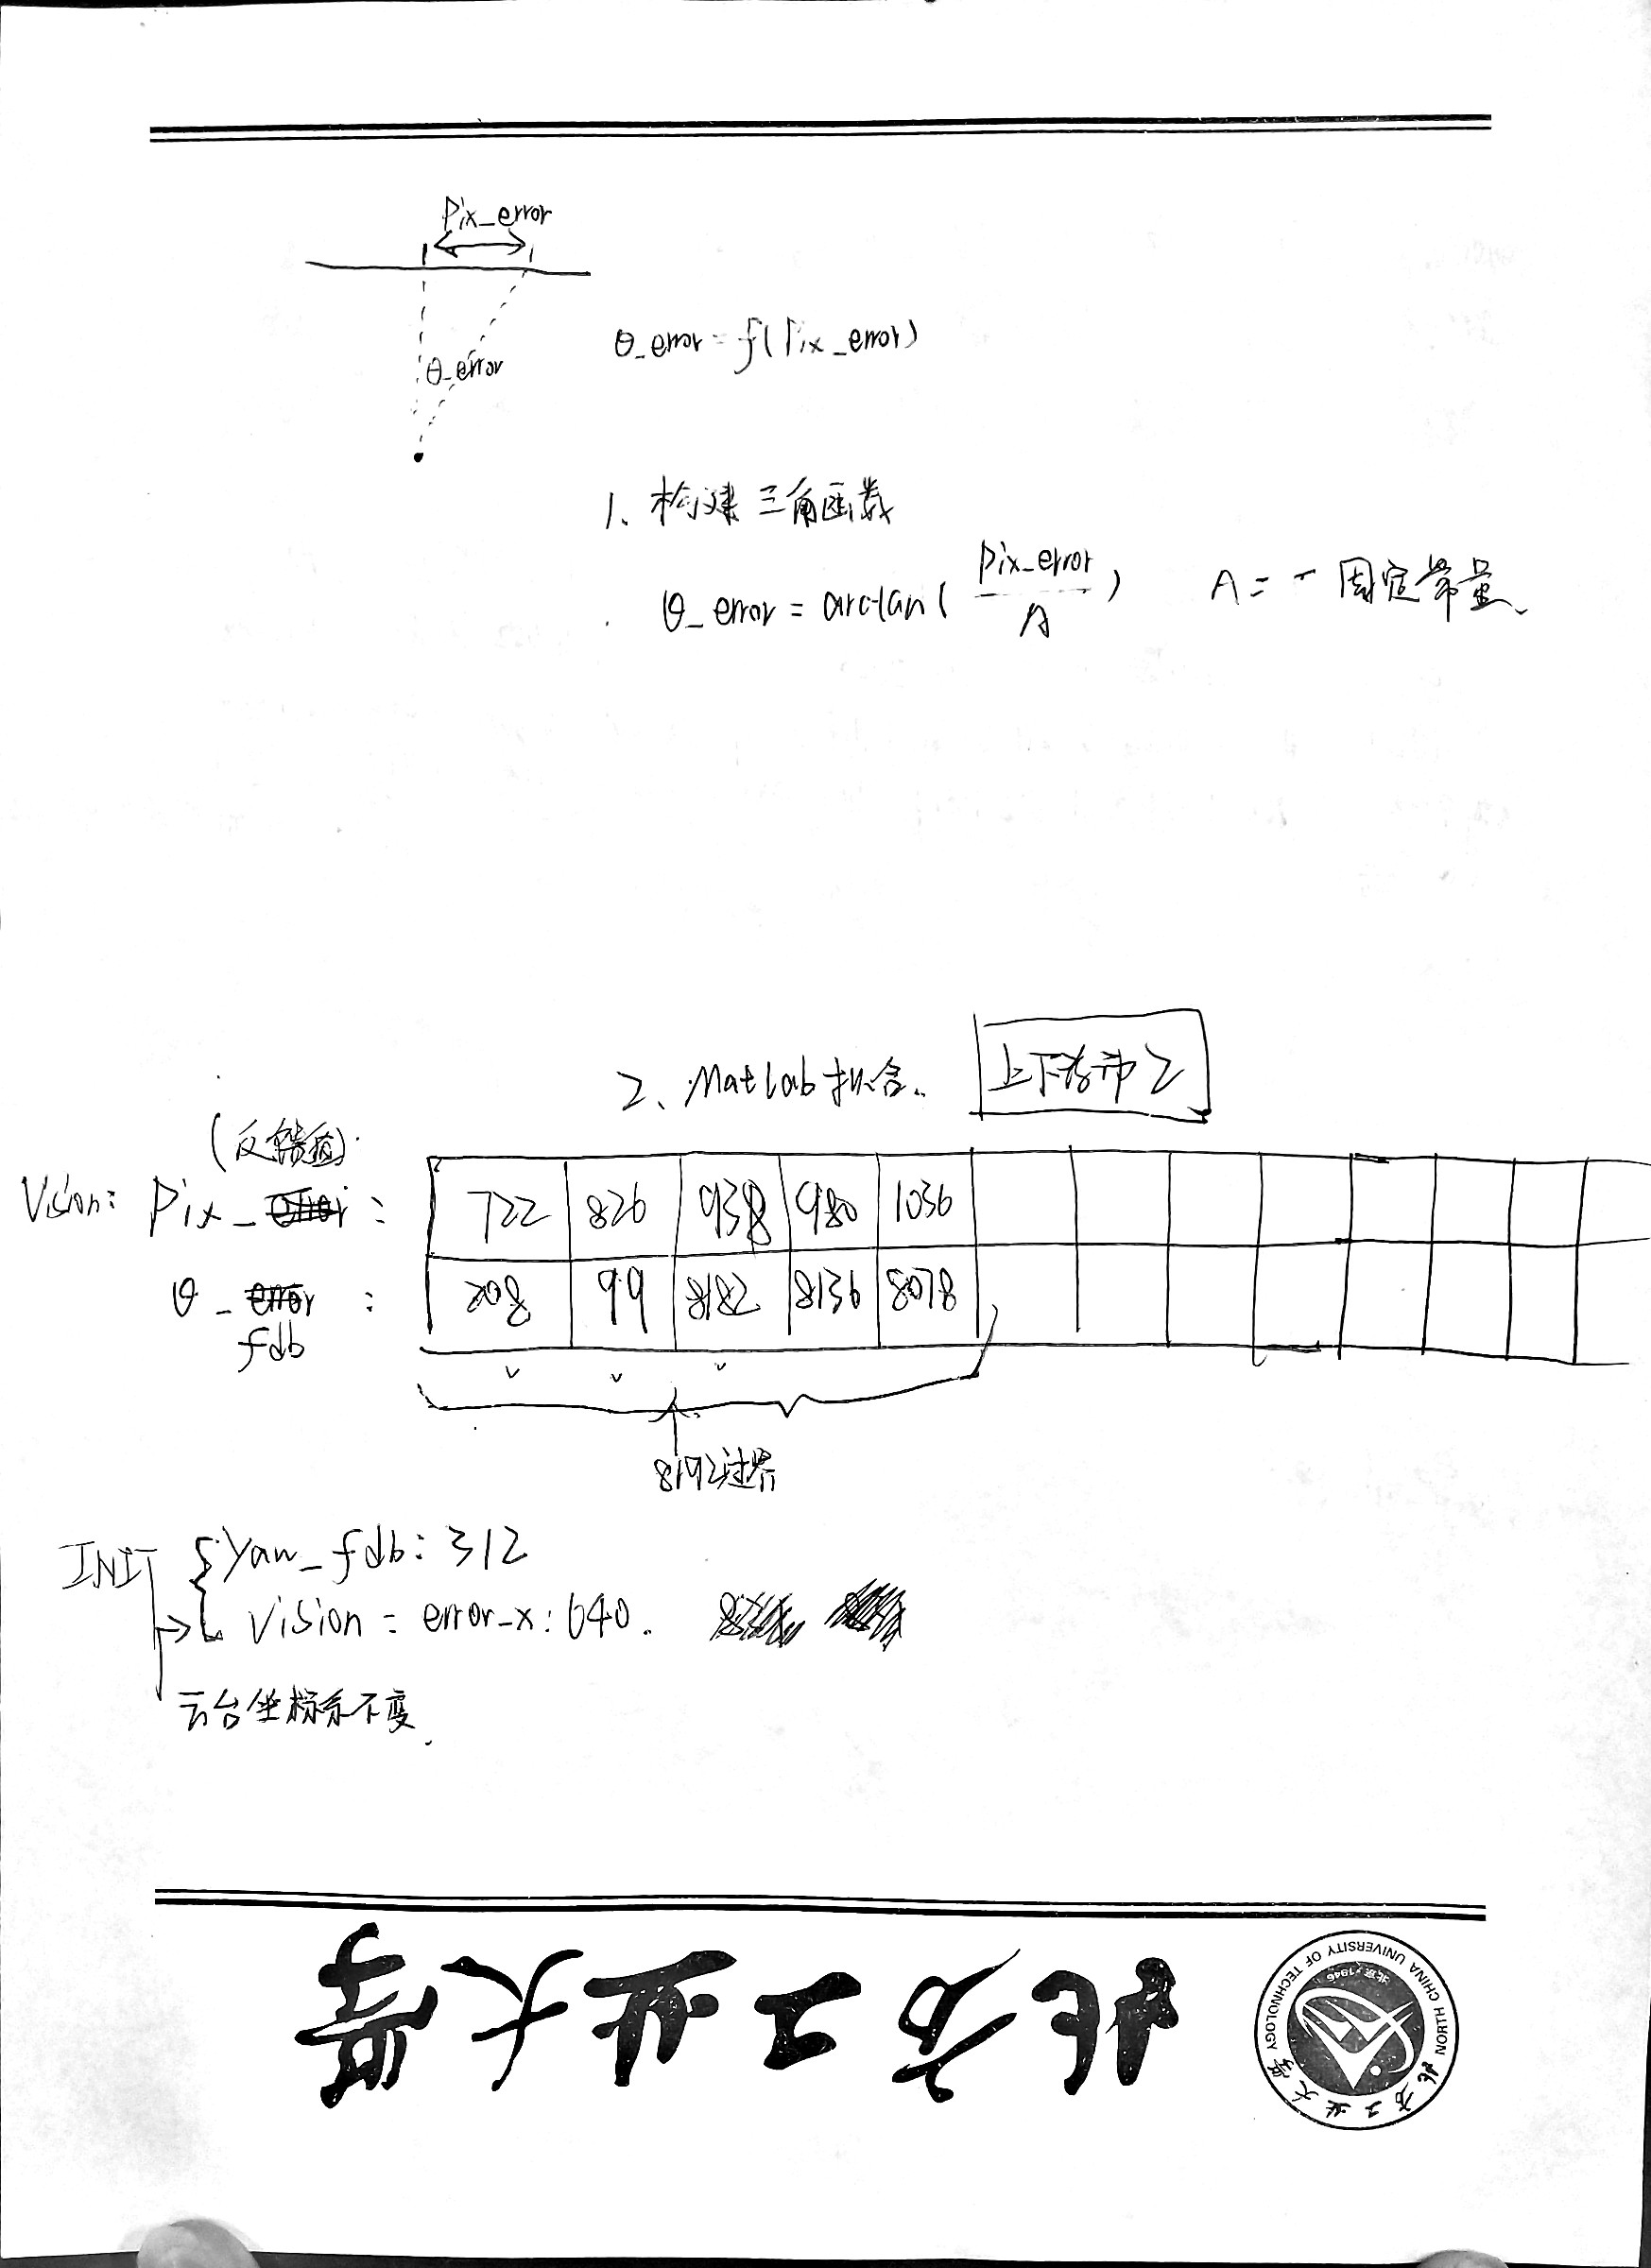 Pix_error
θ_error
θ_error = f(Pix_error)
1、构建三角函数
θ_error = arctan( Pix_error / A )  A = 一固定常量、
2、Matlab拟合. 上下浮动2
(反馈值)
Vision: Pix_ : 722 826 938 980 1036
θ_ : 208 99 8182 8136 8078
fdb
8192过界
INIT { Yaw_fdb: 312
Vision = error_x: 640.
云台坐标系不变.
北方工业大学
NORTH CHINA UNIVERSITY OF TECHNOLOGY
北京·1946
北方工业大学